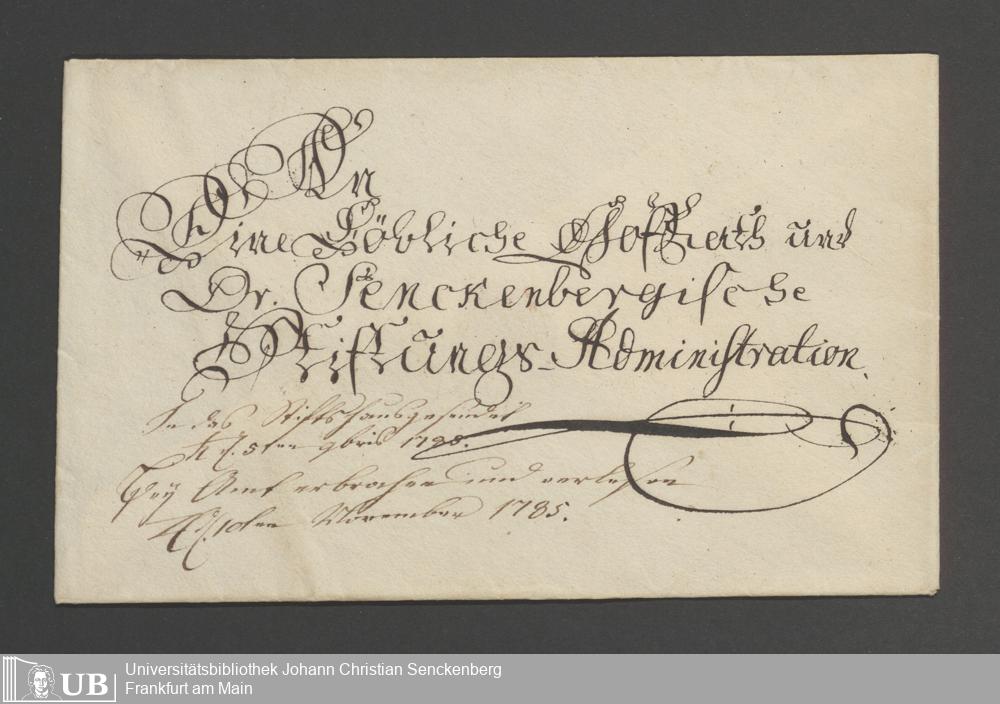 An
Eine Löbliche Hoffrath und
Dr. Senckenbergische
Stifftungs-Administration.
In das Stiftshaus gesendet
d. 5ten 9bris 1785.
Bey Amt erbrochen und verlesen
d. 10ten November 1785.
UB
Universitätsbibliothek Johann Christian Senckenberg
Frankfurt am Main